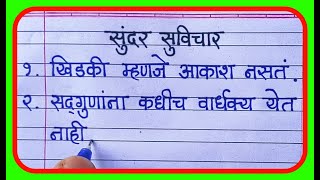 सुंदर सुविचार
१. खिडकी म्हणजे आकाश नसतं.
२. सद्‌गुणांना कधीच वार्धक्य येत
नाही